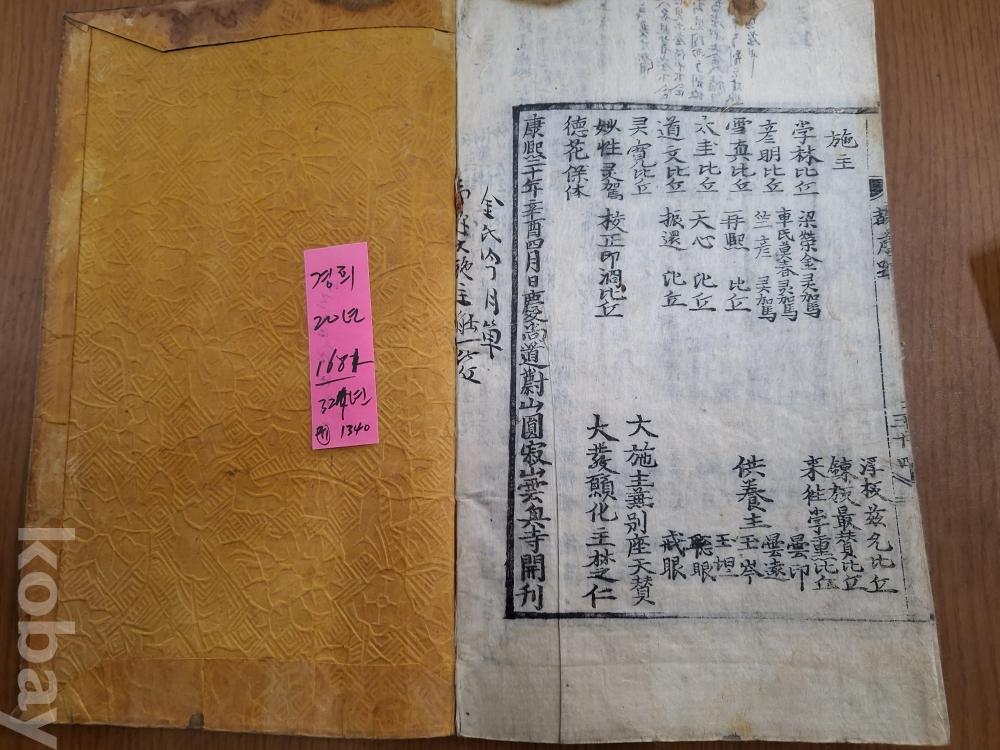 施主
学林比丘 梁榮金灵駕
彦明比丘 車氏莫春灵駕
雪真比丘 竺彦灵駕
太圭比丘 再熙比丘
道文比丘 天心比丘
灵寬比丘 振還比丘
妙性灵駕 校正印澗比丘
德花保体
浮板兹允比丘
鍊板最賛比丘
来往学重比丘
曇印
供養主 曇遠
玉岑
玉坦
聴眼
戒眼
大施主兼別座天賛
大發願化主楚仁
康熙二十年辛酉四月日慶尚道蔚山圓寂山雲興寺開刊
경희
20년
1681
년
1340
kobay